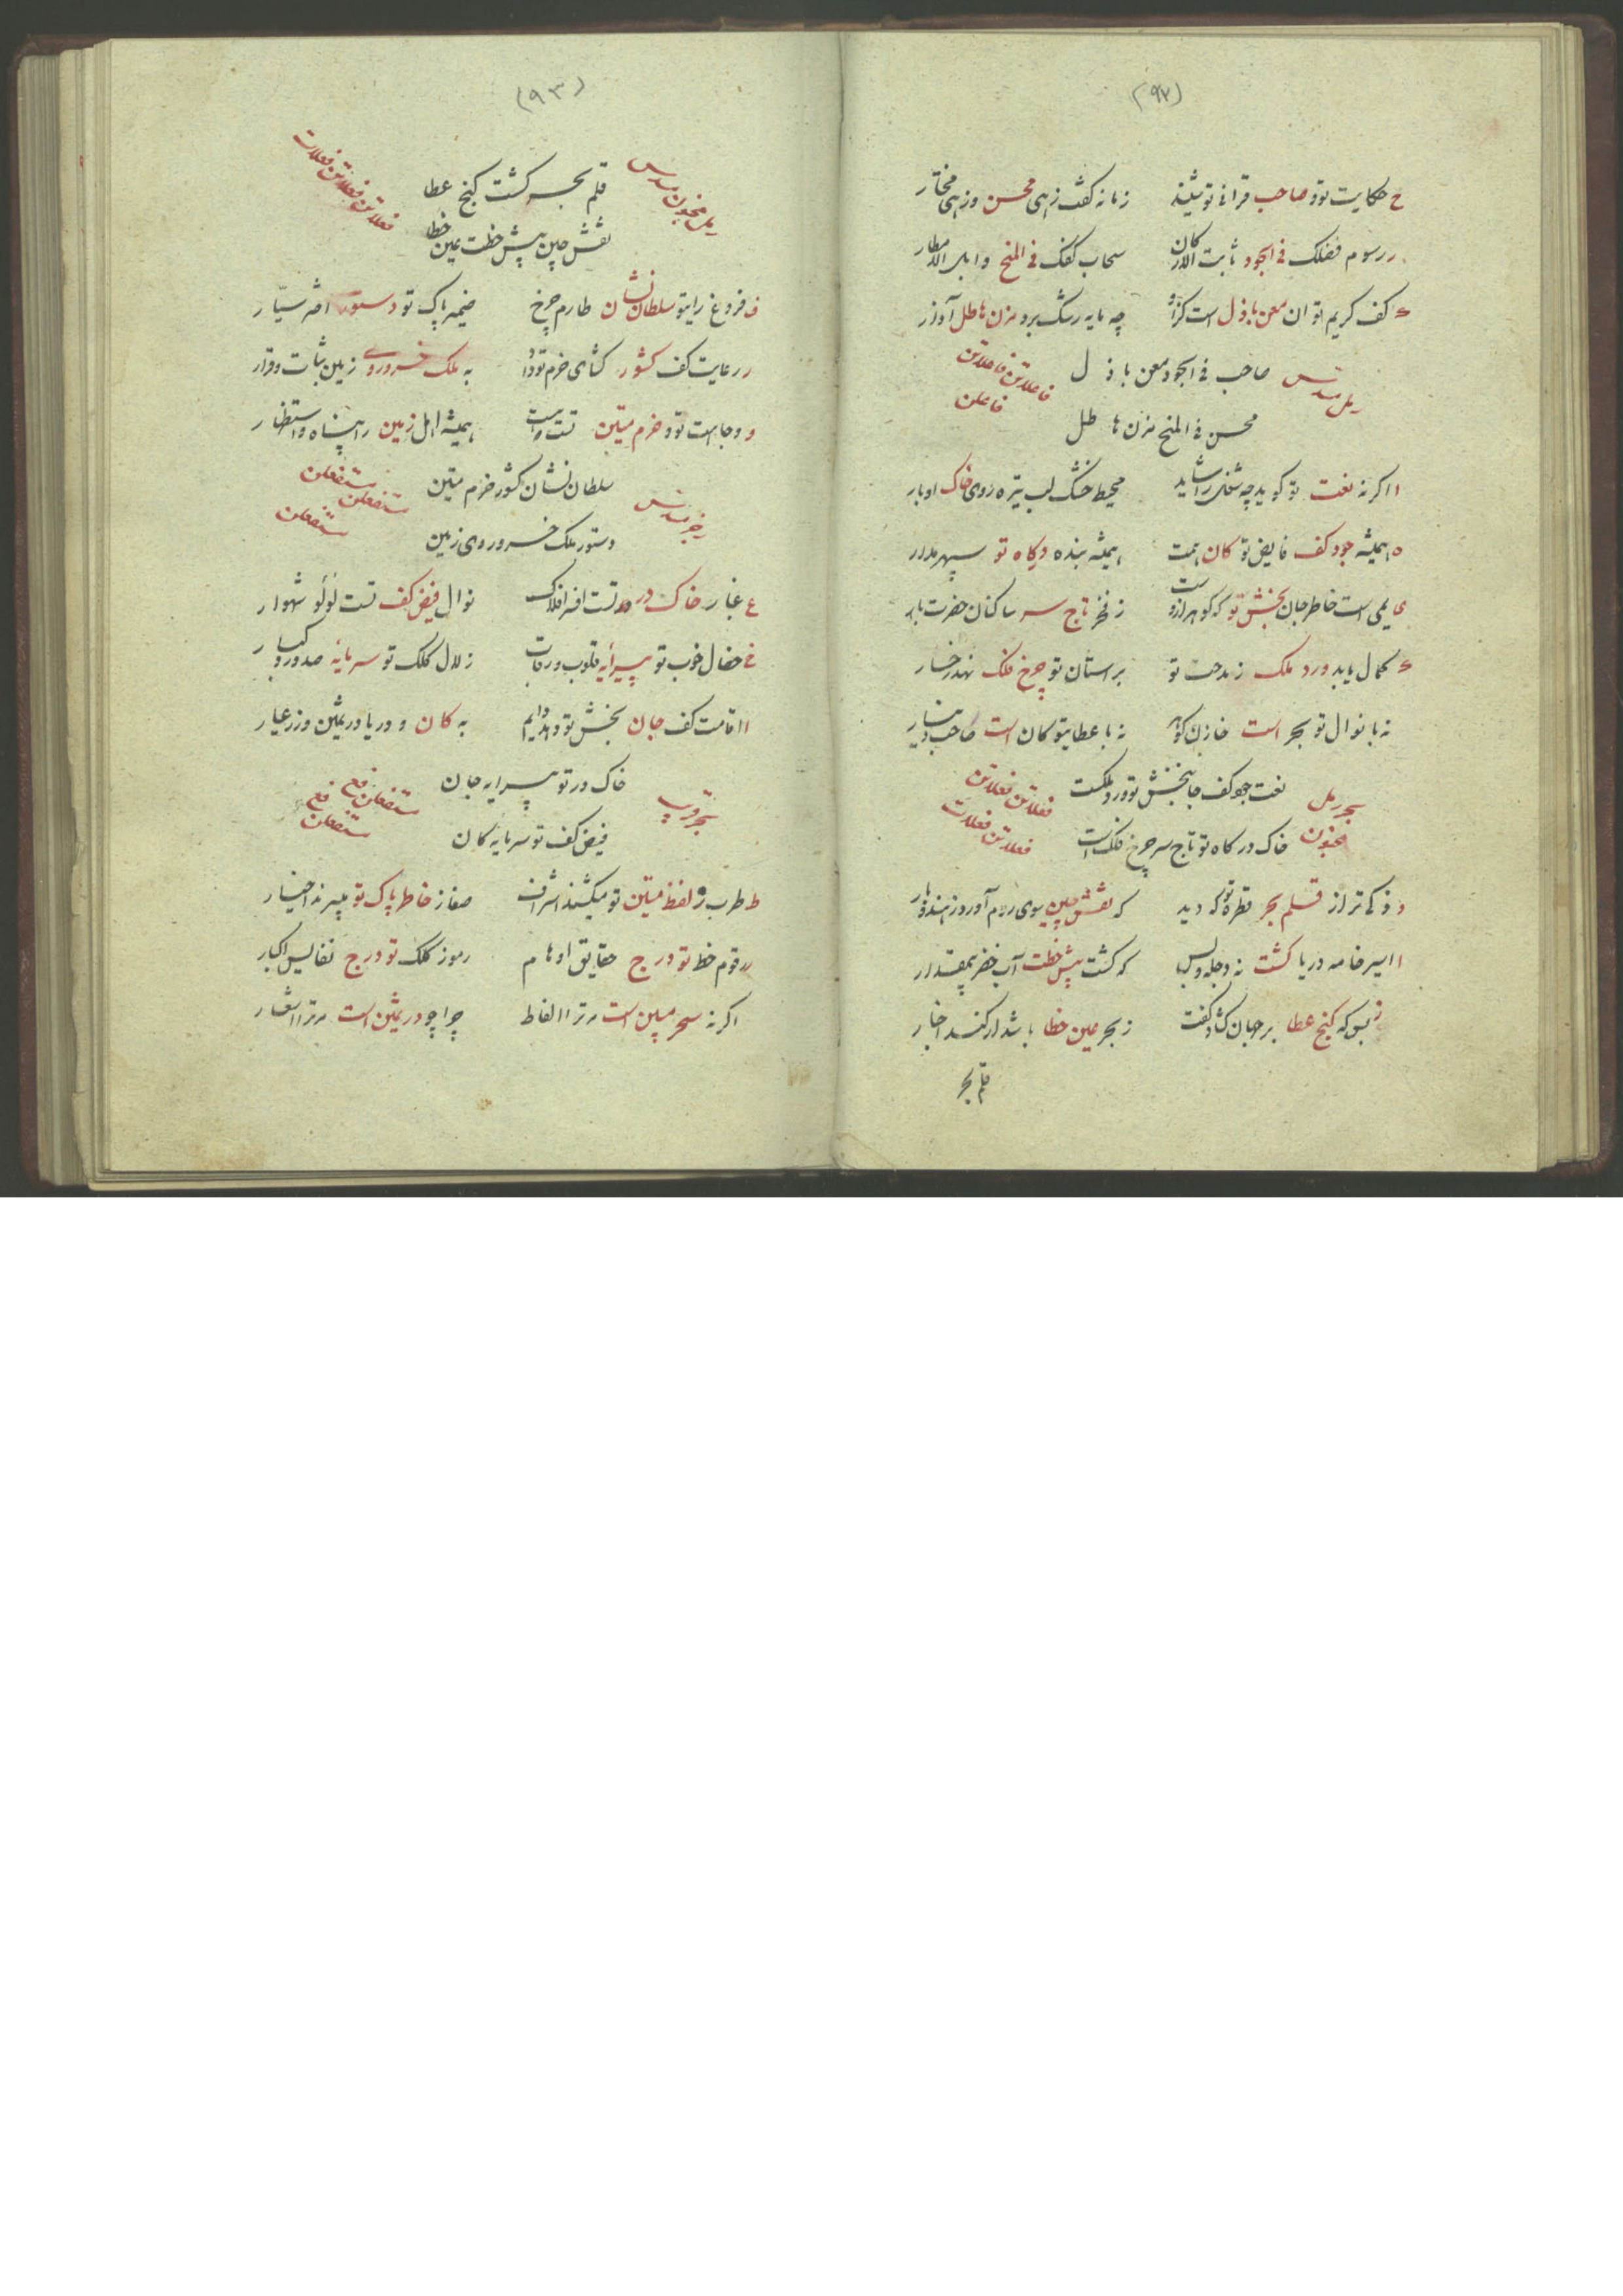 (۹۲)
ح حکایت تو و صاحب قرانی تو شنید زمانه گفت زهی محسن و زهی مختار
ر رسوم فضلک فی الجود ثابت الارکان سحاب کفک فی المنح وابل الامطار
کف کریم تو ان معن باذل است کزو چه مایه رشک برد مزن هاطل آوزار
صاحب فی الجود معن باذل
رمل مسدس
فاعلاتن فاعلاتن فاعلن
محسن فی المنح مزن هاطل
ا اگر نه نعت تو گوید چه شغل را شاید محیط خشک لب تیره روی خاک اوبار
ه همیشه جود کف فایض تو کان همت همیشه بنده درگاه تو سپهر مدار
ی یمی است خاطر جان بخش تو که گوهر ازوست ز فخر تاج سر ساکنان حضرت بار
کمال یابد ورد ملک ز مدحت تو بر استان تو چرخ فلک نهد رخسار
نه با نوال تو بحر است خازن گوهر نه با عطای تو کان است صاحب دینار
نعت جود کف جانبخش تو ورد ملکست
بحر رمل مخبون
فعلاتن فعلاتن فعلاتن فعلات
خاک درگاه تو تاج سر چرخ فلک است
و ذکی تر از قلم بحر قطره تو که دید که نقش چین سوی روم آورد ز هندوبار
ا اسیر خامه دریا گشت نه دجله و بس که گشت پیش خطت آب خضر بیمقدار
ز بس که گنج عطا بر جهان گشاد کفت ز بحر عین خطا باشد ار کنند اخبار
قلم بحر
(۹۳)
قلم بحر گشت گنج عطا
رمل مخبون مسدس
فعلاتن فعلاتن فعلات
نقش چین پیش خطت عین خطا
ف فروغ رای تو سلطان نشان طارم چرخ ضمیر پاک تو دستور اختر سیّار
ر رعایت کف کشور گشای خرم تو داد به ملک خسرو روی زمین ثبات و قرار
و وجاهت تو و خرم متین تست و است همیشه اهل زمین را پناه و استظهار
سلطان نشان کشور خرم متین
رجز مسدس
مستفعلن مستفعلن مستفعلن
دستور ملک خسرو روی زمین
ع غبار خاک در تست افسر افلاک نوال فیض کف تست لؤلؤ شهوار
خ خصال خوب تو پیرایه قلوب و رقاب زلال کلک تو سرمایه صدور و کبار
ا اقامت کف جان بخش تو دهد دایم به کان و دریا در ثمین و زر عیار
خاک در تو پیرایه جان
بحر قریب
مستفعلن فع مستفعلن فع
فیض کف تو سرمایه کان
ط طرب ز لفظ متین تو میکشند اشراف صفا ز خاطر پاک تو میبرند اخیار
ر رقوم خط تو درج حقایق اوهام رموز کلک تو درج نفایس اکبار
اگر نه سحر مبین است مر ترا الفاظ چرا چو در ثمین است مر ترا اشعار